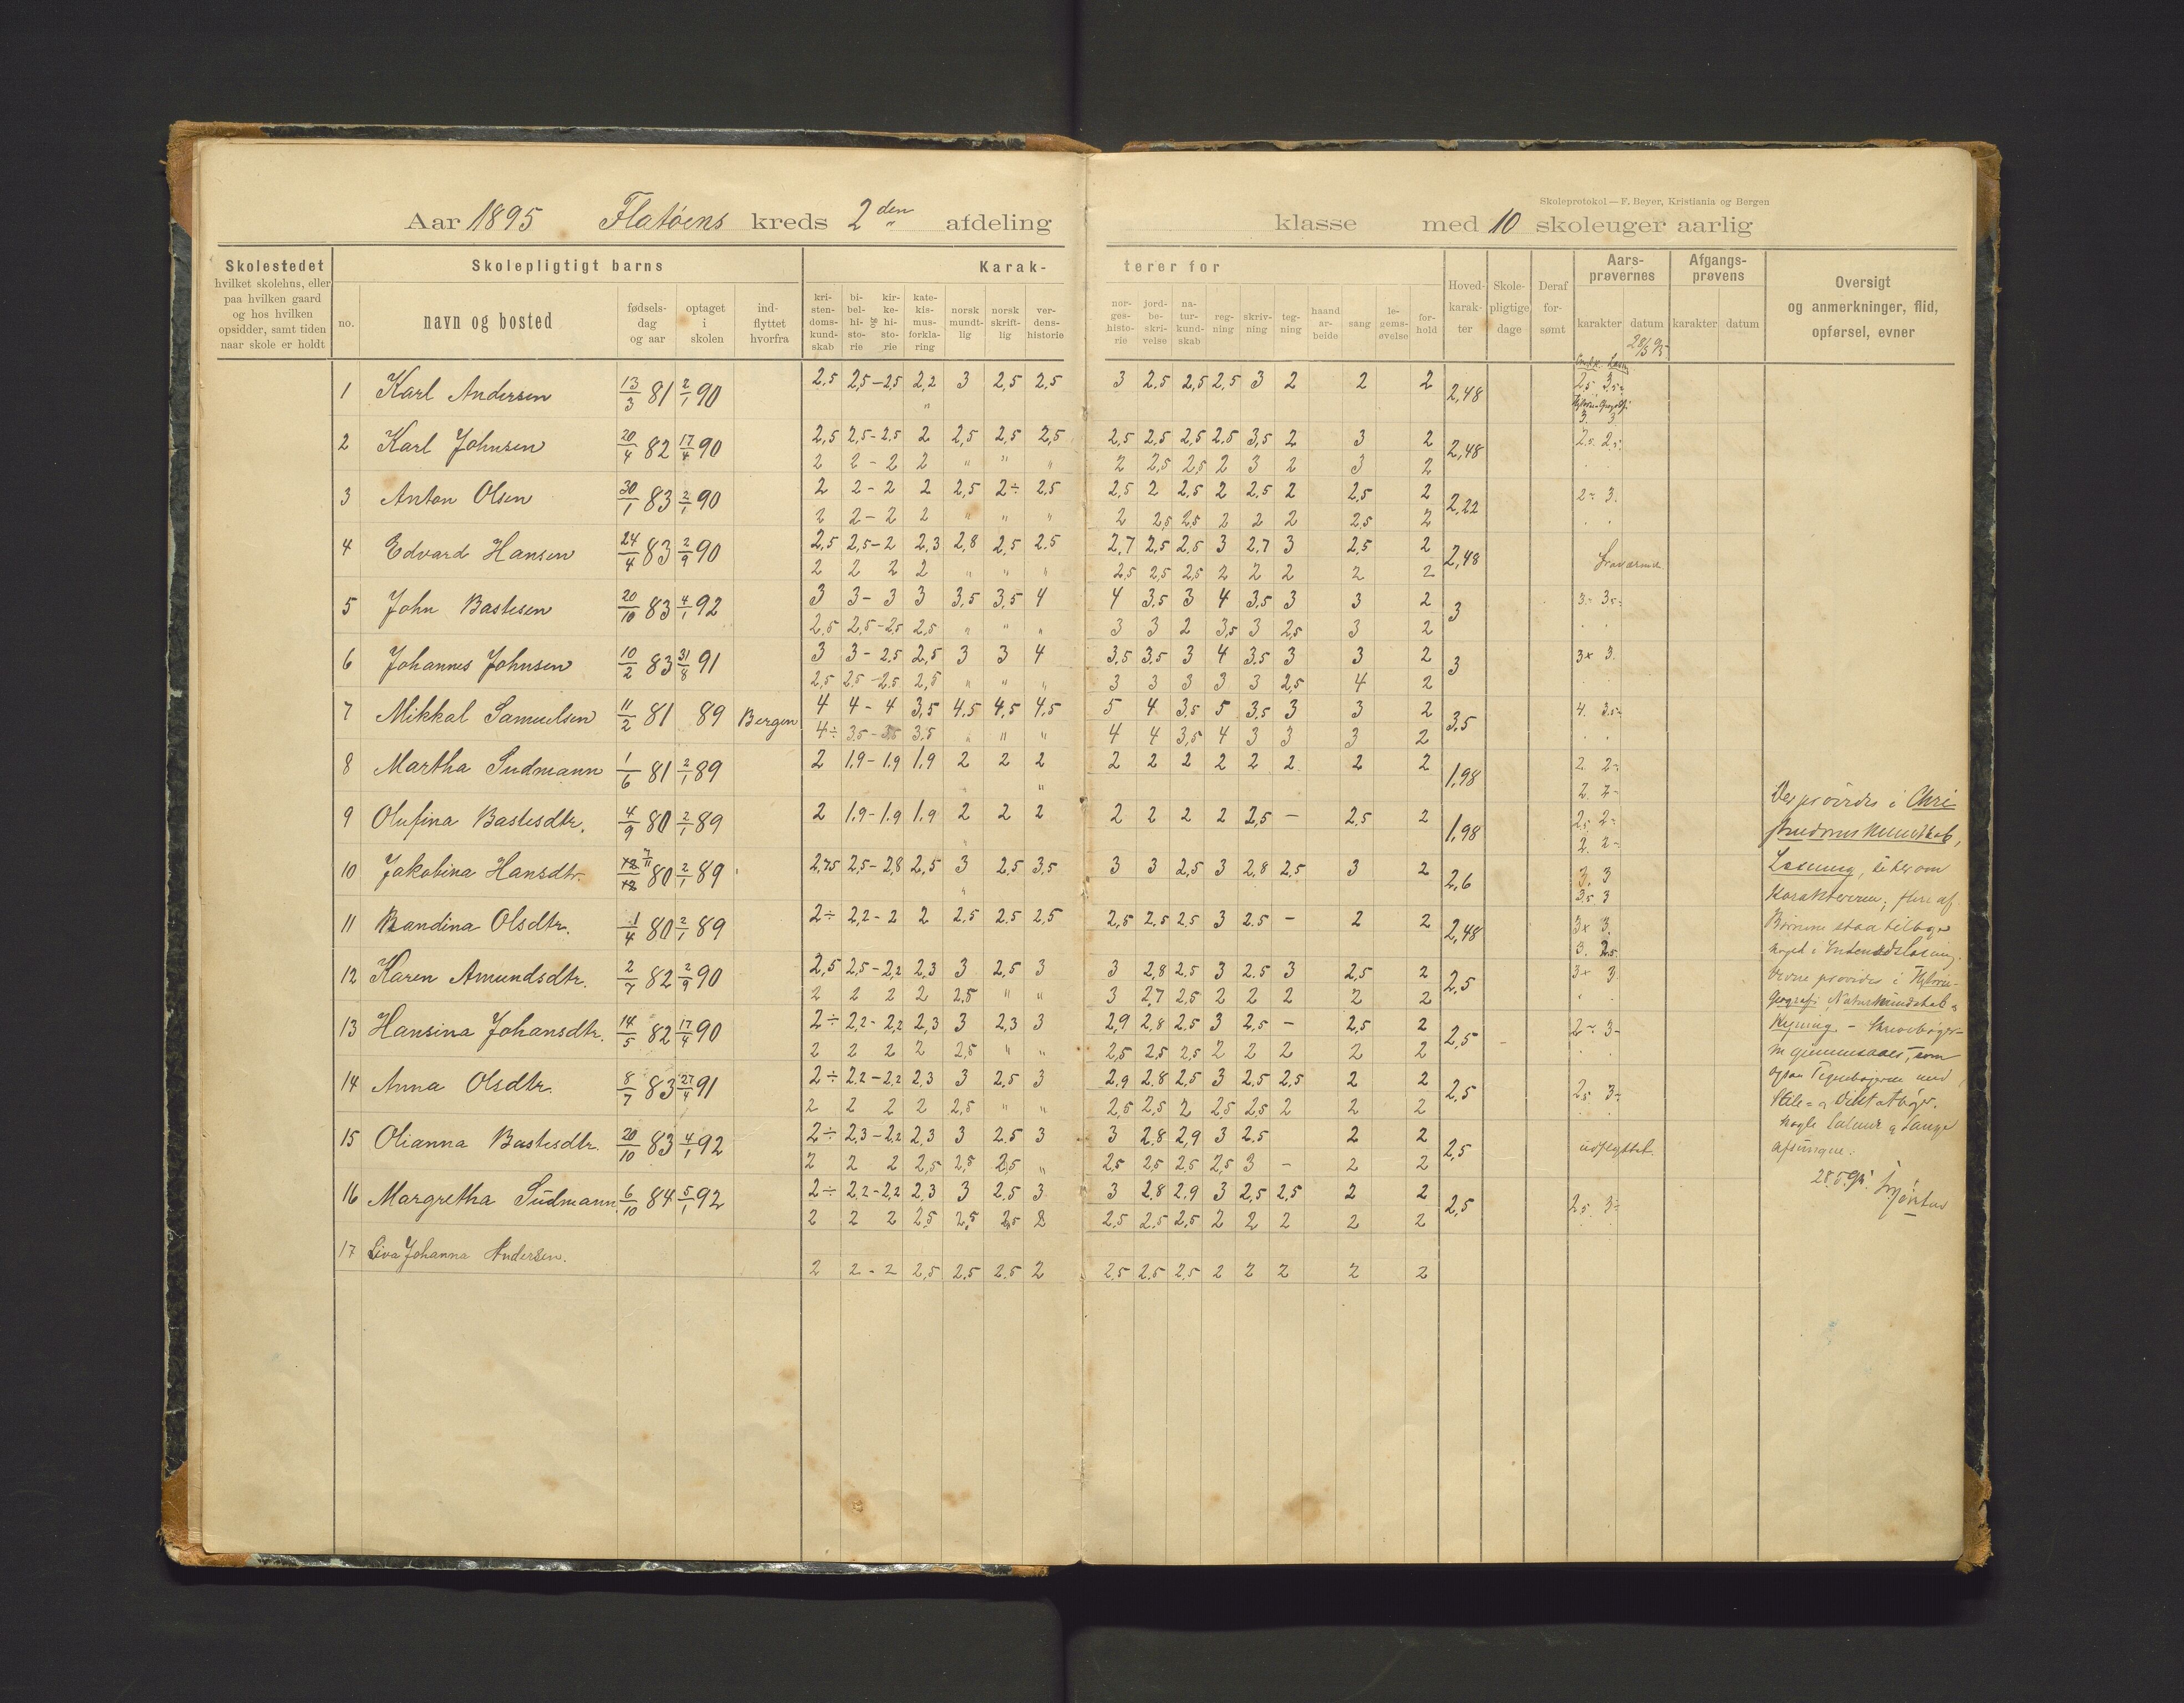 Skoleprotokol — F. Beyer, Kristiania og Bergen
Aar 1895 Flatøens kreds 2den afdeling klasse med 10 skoleuger aarlig
Skolestedet hvilket skolehus, eller paa hvilken gaard og hos hvilken opsidder, samt tiden naar skole er holdt
Skolepligtigt barns
no. navn og bosted fødselsdag og aar optaget i skolen indflyttet hvorfra
Karakterer for
kristendomskundskab bibelhistorie og kirkehistorie katekismusforklaring norsk mundtlig norsk skriftlig verdenshistorie norgeshistorie jordbeskrivelse naturkundskab regning skrivning tegning haandarbeide sang legemsøvelse forhold
Hovedkarakter Skolepligtige dage Deraf forsømt
Aarsprøvernes karakter datum
Afgangsprøvens karakter datum
Oversigt og anmerkninger, flid, opførsel, evner
28/5 95
1 Karl Andersen 13/3 81 2/1 90 2,5 2,5-2,5 2,2 3 2,5 2,5 3 2,5 2,5 2,5 3 2 2 2 2,48 2,5 3,5-
" 3. 3
2 Karl Johnsen 20/4 82 17/4 90 2,5 2,5-2,5 2 2,5 2,5 2,5 2,5 2,5 2,5 2,5 3,5 2 3 2 2,48 2,5 2,5-
2 2-2 2 " " " 2 2,5 2,5 2 3 2 3 2
3 Anton Olsen 30/1 83 2/1 90 2 2-2 2 2,5 2÷ 2,5 2,5 2 2,5 2 2,5 2 2,5 2 2,22 2÷ 3.
2 2-2 2 " " " 2 2,5 2,5 2 2 2 2,5 2
4 Edvard Hansen 24/4 83 2/9 90 2,5 2,5-2 2,3 2,8 2,5 2.5 2,7 2,5 2,5 3 2,7 3 2,5 2 2,48 Fraværende
2 2 2 2 " " " 2,5 2,5 2,5 2 2 2 2 2
5 John Bastesen 20/10 83 4/1 92 3 3-3 3 3,5 3,5 4 4 3,5 3 4 3,5 3 3 2 3 3- 3,5-
2,5 2,5-2,5 2,5 " " " 3 3 2 3,5 3 2,5 3 2
6 Johannes Johnsen 10/2 83 31/8 91 3 3-2,5 2,5 3 3 4 3,5 3,5 3 4 3,5 3 3 2 3 3× 3.
2,5 2,5-2,5 2,5 " " " 3 3 3 3 3 2,5 4 2
7 Mikkal Samuelsen 11/2 81 89 Bergen 4 4-4 3,5 4,5 4,5 4,5 5 4 3,5 5 3,5 3 3 2 3,5 4. 3,5-
4÷ 3,5-3,5 3,5 " " " 4 4 3,5 4 3 3 3 2
8 Martha Sudmann 1/6 81 2/1 89 2 1,9-1,9 1,9 2 2 2 2 2 2 2 2 2 2 2 1,98 2 2-
" 2. 2-
9 Olufina Bastesdtr. 4/9 80 2/1 89 2 1,9-1,9 1,9 2 2 2 2 2 2 2 2,5 — 2,5 2 1,98 2,5 2-
2. 2-
10 Jakobina Hansdtr. 7/11 80 2/1 89 2,75 2,5-2,8 2,5 3 2,5 3,5 3 3 2,5 3 2,8 2,5 3 2 2,6 3. 3
3,5 3
11 Bandina Olsdtr. 1/4 80 2/1 89 2÷ 2,2-2 2 2,5 2,5 2,5 2,5 2,5 2,5 3 2.5 — 2 2 2,48 3× 3.
3. 2,5
12 Karen Amundsdtr. 2/7 82 2/9 90 2,5 2,5-2,2 2,3 3 2,5 3 3 2,8 2,5 3 2.5 3 2,5 2 2,5 3× 3
2 2 2 2 2,5 " " 3 2,7 2,5 2 2 2 2 2
13 Hansina Johansdtr. 14/5 82 17/4 90 2÷ 2,2-2,2 2,3 3 2,3 3 2,9 2,8 2,5 3 2,5 — 2,5 2 2,5 2÷ 3-
2 2 2 2 2,5 " " 2,5 2,5 2,5 2 2 2 2 2
14 Anna Olsdtr. 8/7 83 27/4 91 2÷ 2,2-2,2 2,3 3 2,5 3 2,9 2,8 2,5 3 2,5 2,5 2 2 2,5 2,5 3-
2 2 2 2 2,5 " " 2,5 2,5 2 2,5 2,5 2 2 2
15 Olianna Bastesdtr. 20/10 83 4/1 92 2÷ 2,3-2,2 2,3 3 2.5 3 3 2,8 2,9 3 2.5 2 2 2,5 udflyttet.
2 2 2 2,5 2,5 2,5 " 2,5 2,5 2,5 2,5 3 — 2 2
16 Margretha Sudmann. 6/10 84 5/1 92 2÷ 2,2-2,2 2,3 3 2,5 3 3 2,8 2,9 3 2,5 2,5 2 2 2,5 2,5 3-
2 2 2 2,5 2,5 2,5 2 2,5 2,5 2,5 2 2 2 2 2
17 Liva Johanna Andersen.
2 2-2 2,5 2,5 2.5 2 2,5 2,5 2,5 2 2 2 2 2
Der prøvedes i Chri-
stendomskundskab,
Læsning,
Karakteren; flere af
Børnene staa tilbage
noget i Indenadslæsning.
Videre prøvedes i Historie-
Geografi, Naturkundskab &
Regning. - Skrivebøger-
ne gjennemsaaes, som
ogsaa Tegnebøgerne med
Stile- & Diktatbøger.
Nogle Salmer & Sange
afsunges.
28.5.95.